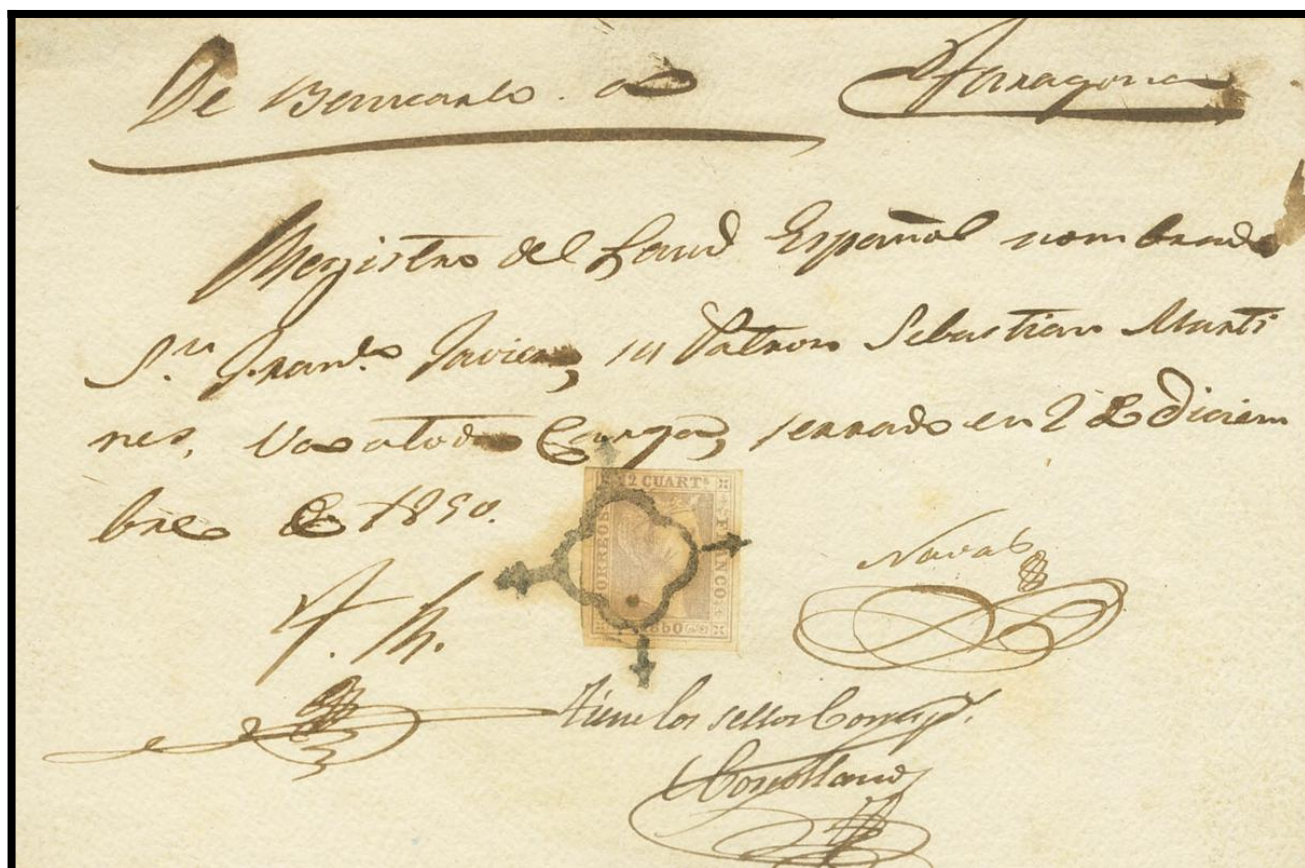 De Benicarlo a Tarragona
Registro del Laud Español nombrado
Sn. Franco. Javier, su Patron Sebastian Marti
nes, Va a toda Carga, serrado en 2 de Diciem
bre de 1850.
12 CUARTs
CORREOS
FRANCO
1850
Naval
Tiene los sellos